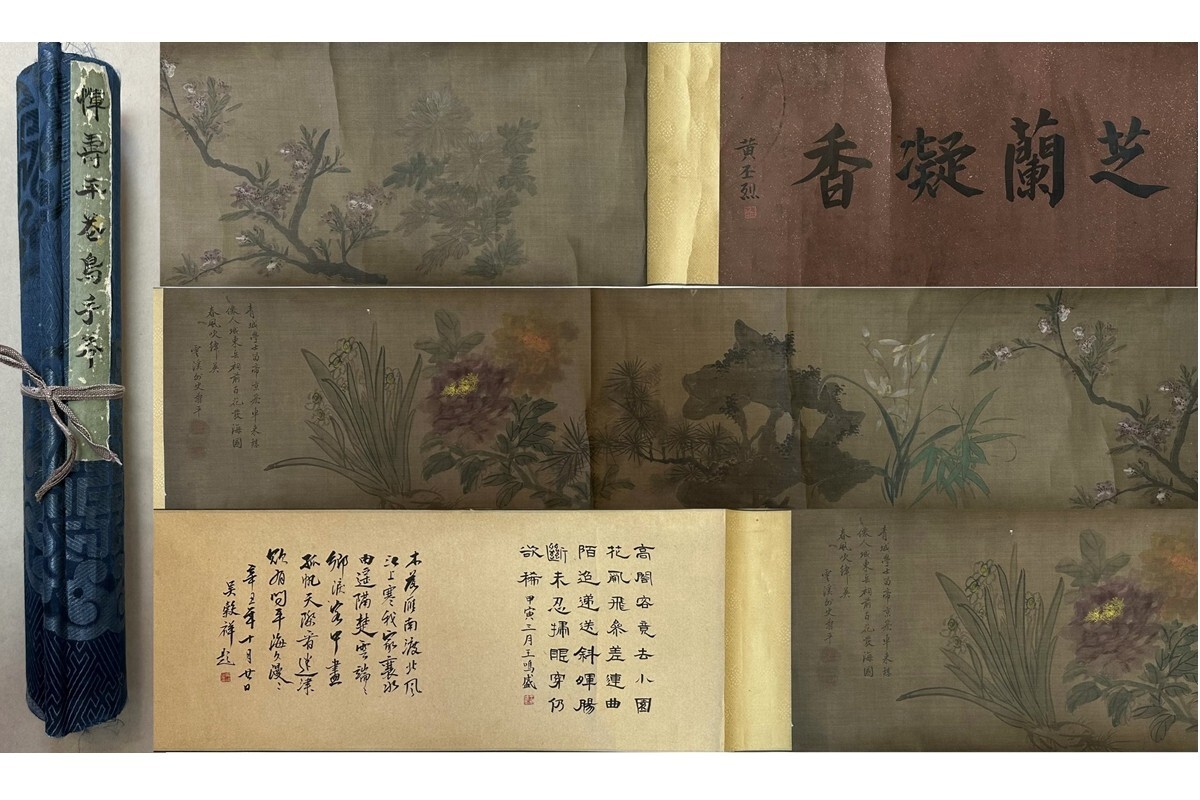 惲壽平花鳥手卷
芝蘭凝香
黃丕烈
雲溪外史壽平
高閣客竟去小園
花亂飛參差連曲
陌迢遞送斜暉腸
斷未忍掃眼穿仍
欲稀 甲寅三月王鳴盛
木落雁南渡北風
江上寒我家襄水
曲遙隔楚雲端
鄉淚客中盡
孤帆天際看迷津
欲有問平海夕漫々
辛丑年十月廿日
吴穀祥題
雲溪外史壽平